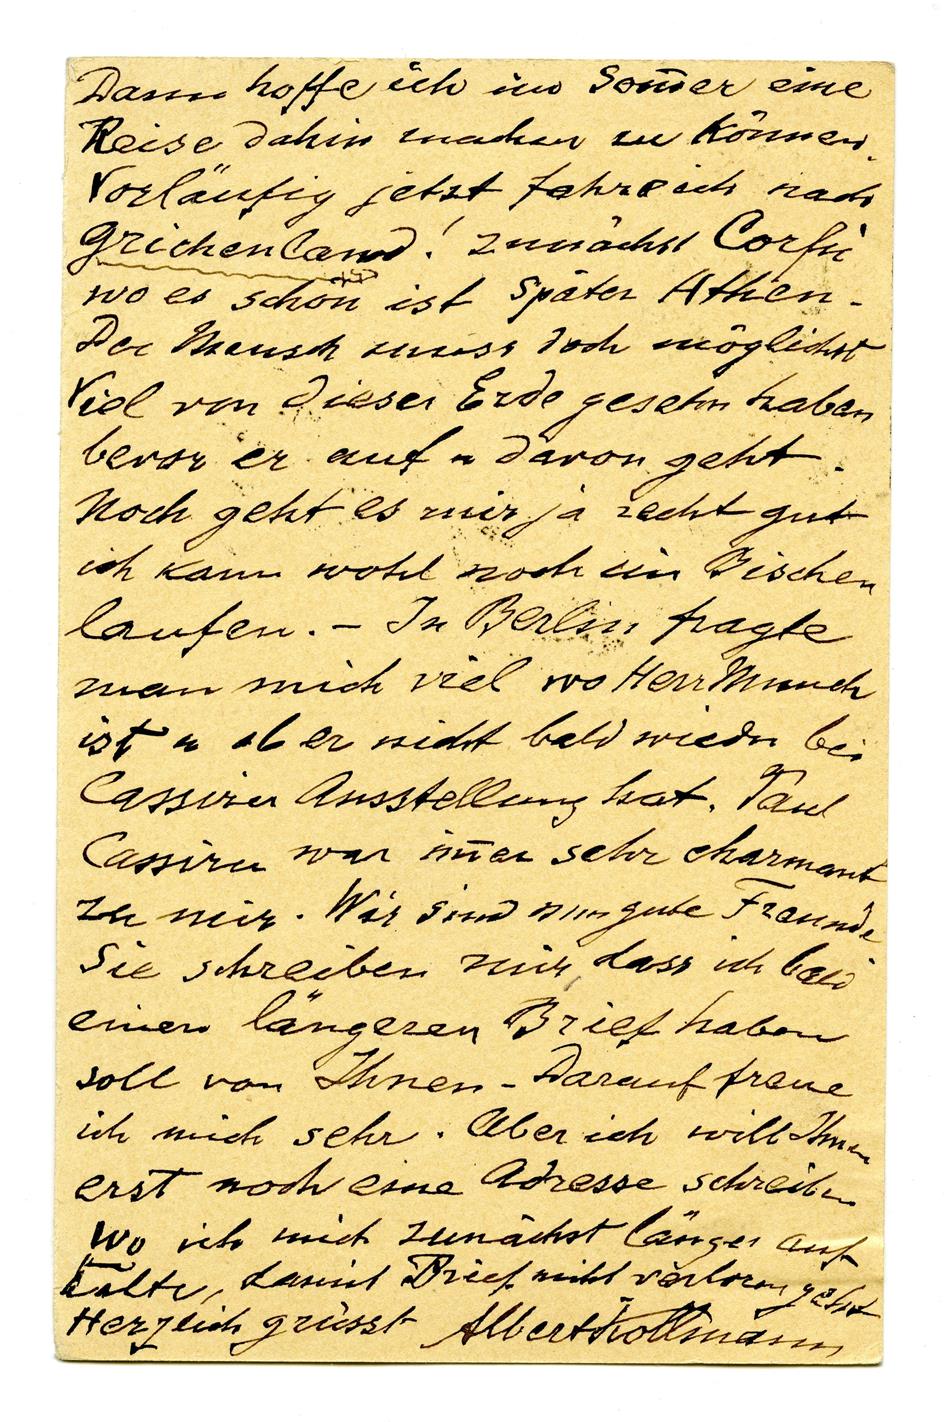 Dann hoffe ich im Som̅er eine
Reise dahin machen zu können.
Vorläufig jetzt fahre ich nach
Grichenland! zunächst Corfu
wo es schön ist später Athen –
Der Mensch muss doch möglichst
Viel von dieser Erde gesehn haben
bevor er auf u davon geht.
Noch geht es mir ja recht gut
ich kann wohl noch ein Bischen
laufen. – In Berlin fragte
man mich viel wo Herr Munch
ist u ob er nicht bald wieder bei
Cassirer Ausstellung hat. Paul
Cassirer war im̅er sehr charmant
zu mir. Wir sind nun gute Freunde
Sie schreiben mir dass ich bald
einen längeren Brief haben
soll von Ihnen – Darauf freue
ich mich sehr. Aber ich will Ihnen
erst noch eine Adresse schreiben
wo ich mich zunächst länger auf
halte, damit Brief nicht verloren geht
Herzlich grüsst Albert Kollmann